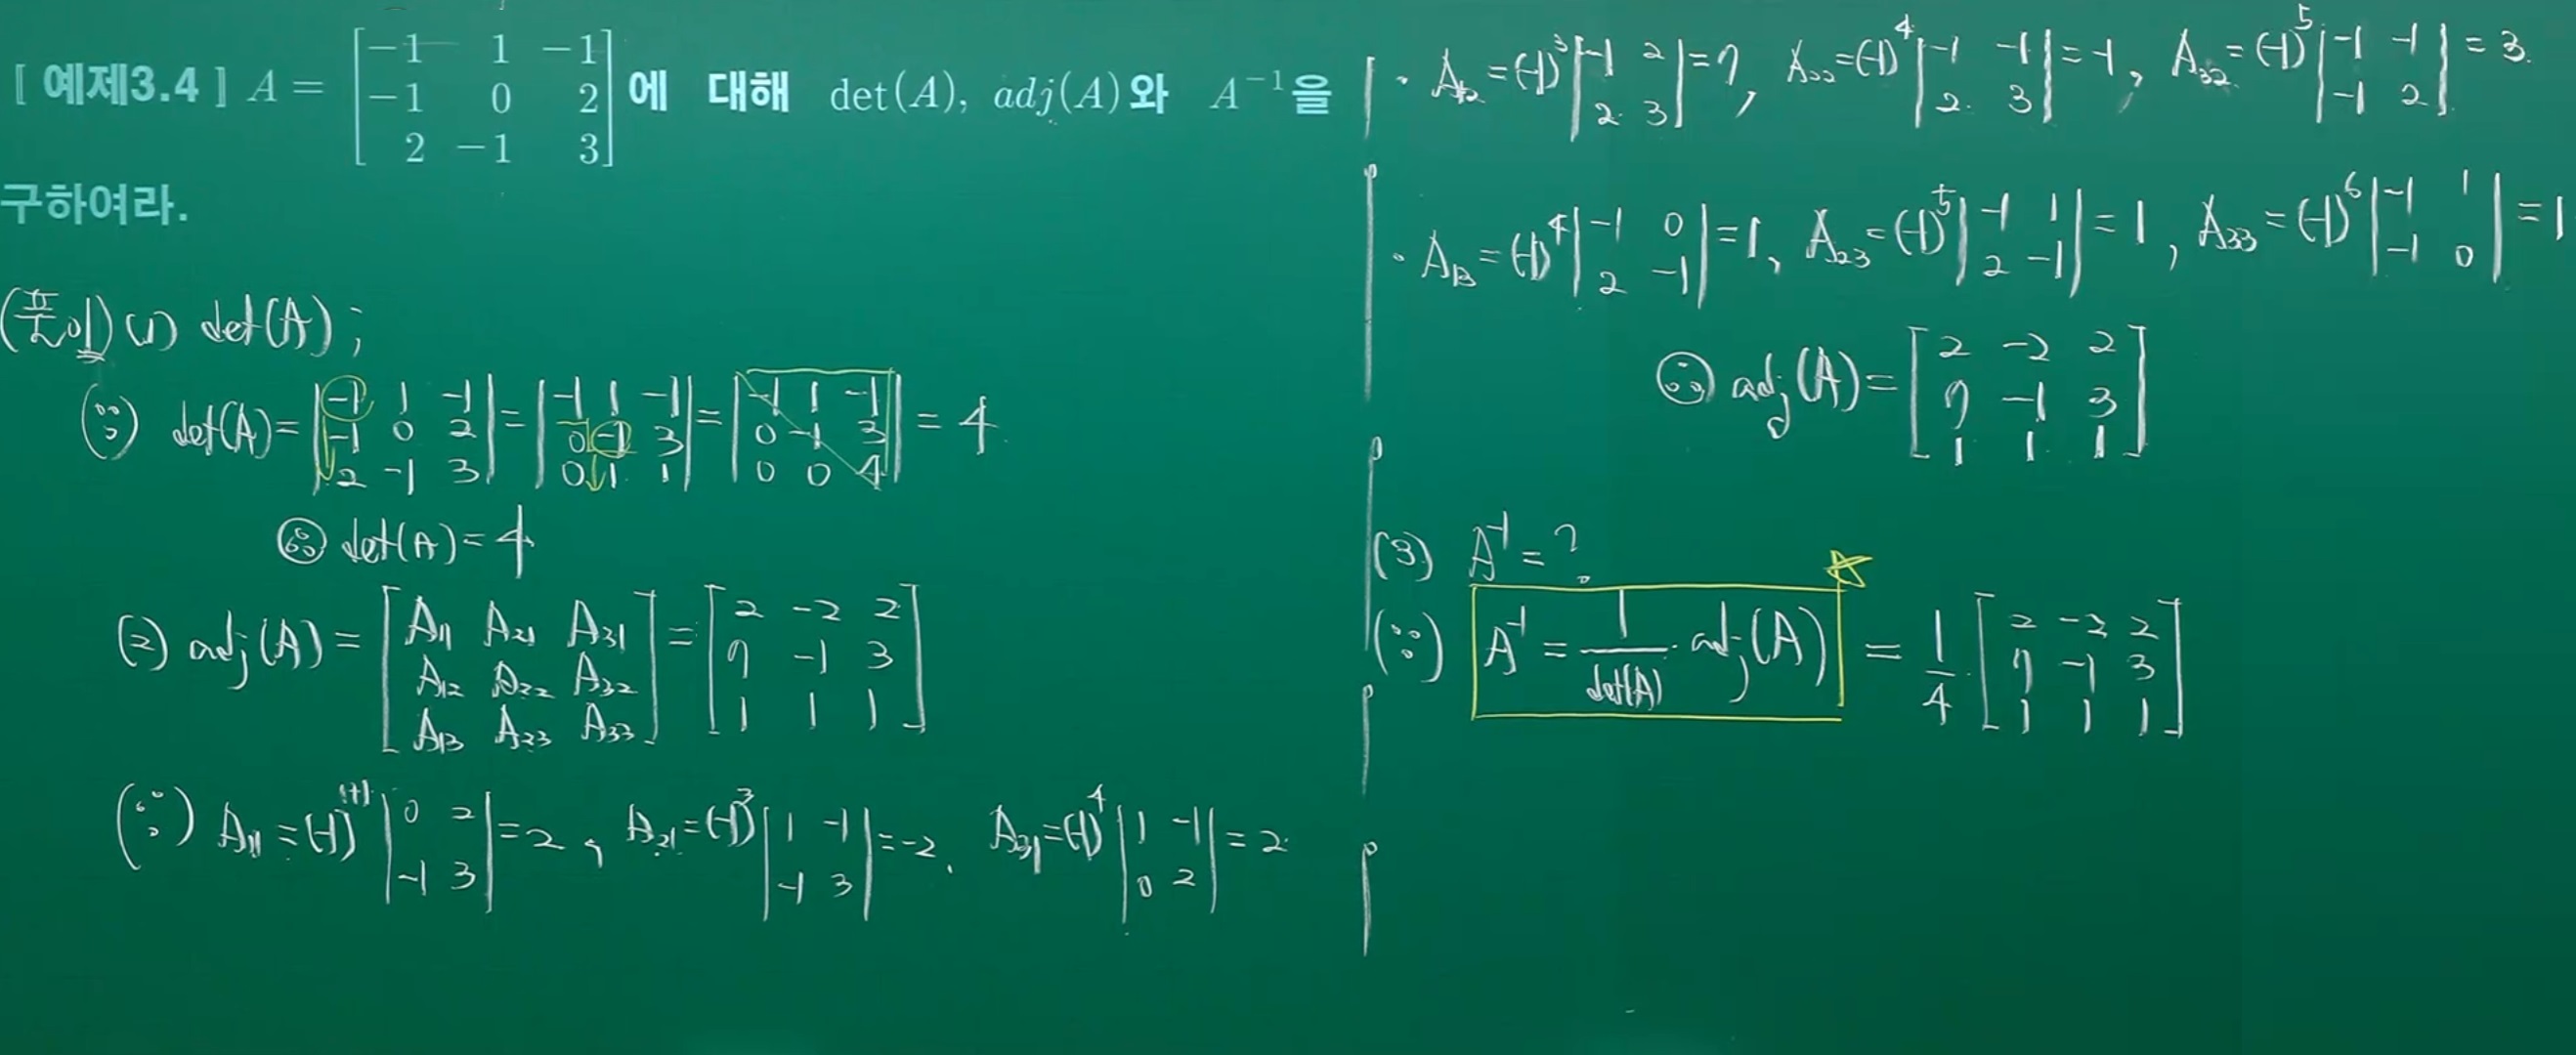 [ 예제3.4 ] A = [ -1 1 -1 ; -1 0 2 ; 2 -1 3 ] 에 대해 det(A), adj(A)와 A⁻¹을
구하여라.
(풀이) (1) det(A) ;
(∵) det(A) = | -1 1 -1 ; -1 0 2 ; 2 -1 3 | = | -1 1 -1 ; 0 -1 3 ; 0 1 1 | = | -1 1 -1 ; 0 -1 3 ; 0 0 4 | = 4.
∴ det(A) = 4
(2) adj(A) = [ A₁₁ A₂₁ A₃₁ ; A₁₂ A₂₂ A₃₂ ; A₁₃ A₂₃ A₃₃ ] = [ 2 -2 2 ; 7 -1 3 ; 1 1 1 ]
(∵) A₁₁ = (-1)¹⁺¹ | 0 2 ; -1 3 | = 2, A₂₁ = (-1)³ | 1 -1 ; -1 3 | = -2, A₃₁ = (-1)⁴ | 1 -1 ; 0 2 | = 2
· A₁₂ = (-1)³ | -1 2 ; 2 3 | = 7, A₂₂ = (-1)⁴ | -1 -1 ; 2 3 | = -1, A₃₂ = (-1)⁵ | -1 -1 ; -1 2 | = 3.
· A₁₃ = (-1)⁴ | -1 0 ; 2 -1 | = 1, A₂₃ = (-1)⁵ | -1 1 ; 2 -1 | = 1, A₃₃ = (-1)⁶ | -1 1 ; -1 0 | = 1
∴ adj(A) = [ 2 -2 2 ; 7 -1 3 ; 1 1 1 ]
(3) A⁻¹ = ?
(∵) A⁻¹ = 1/det(A) · adj(A) = 1/4 · [ 2 -2 2 ; 7 -1 3 ; 1 1 1 ]